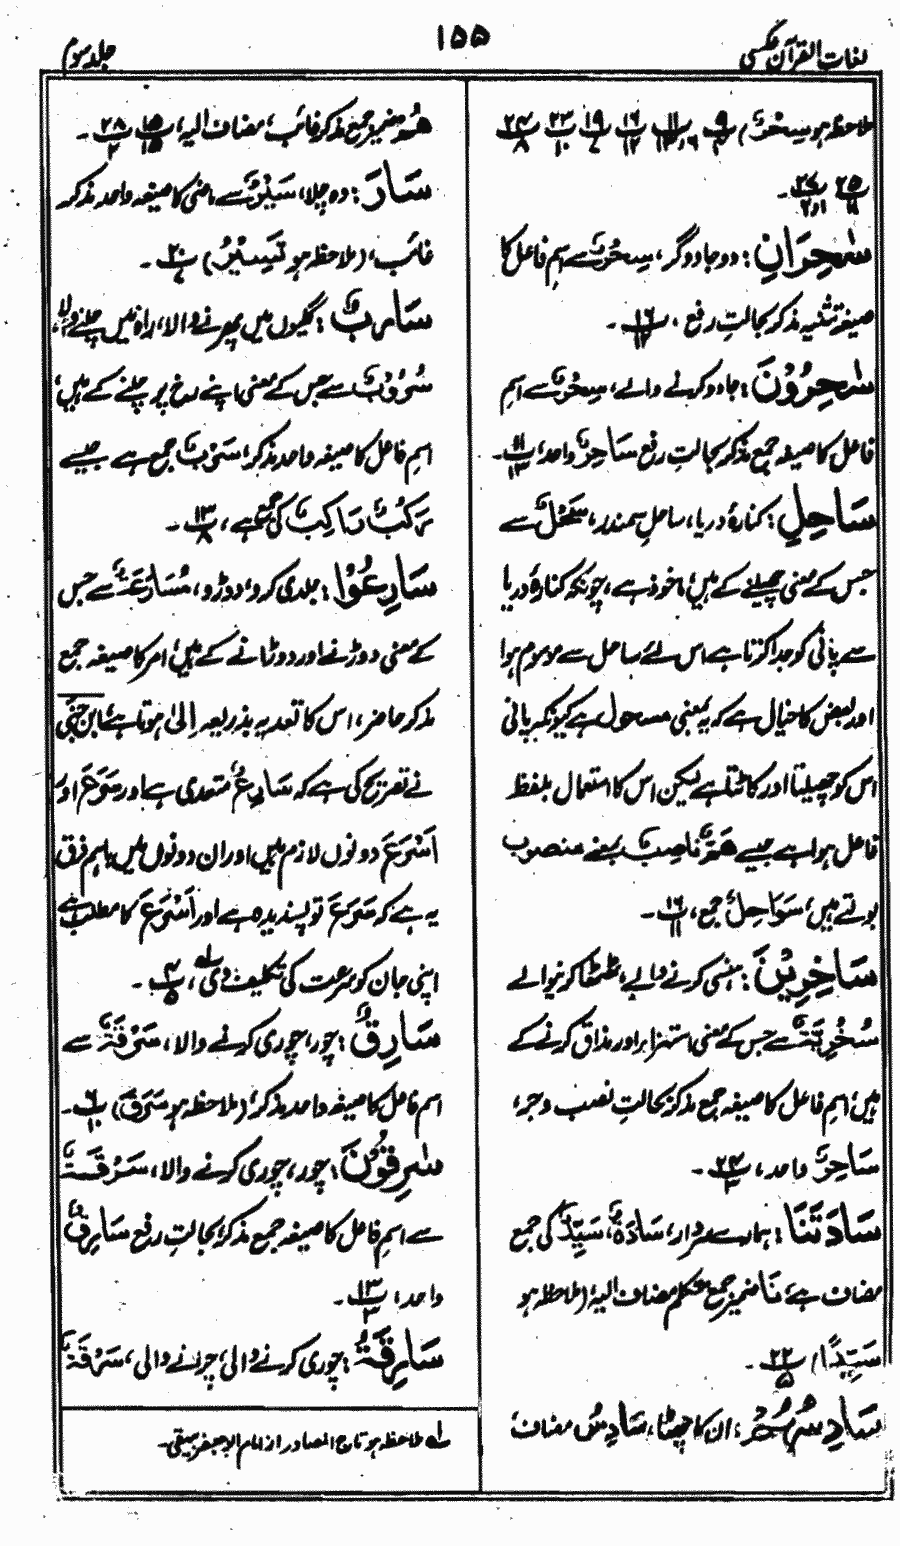 لغات القرآن عکسی
۱۵۵
جلد سوم
ملاحظہ ہو سِحْرٌ) ۹/۴ ۱۱/۱۳،۱۶ ۱۶/۱۲ ۱۹/۷ ۲۳/۱۰ ۲۴/۸
۲۵/۱۱ ۲۷/۱و۲ ۔
سٰحِرَانِ : دو جادوگر، سِحْرٌ سے اسم فاعل کا
صیغہ تثنیہ مذکر بحالتِ رفع ، ۱۶/۱۲ ۔
سٰحِرُوْنَ : جادو کرنے والے، سِحْرٌ سے اسمِ
فاعل کا صیغہ جمع مذکر بحالتِ رفع سَاحِرٌ واحد، ۱۱/۱۳ ۔
سَاحِلِ : کنارۂ دریا، ساحلِ سمندر، سَحْلٌ سے
جس کے معنی چھیلنے کے ہیں، ماخوذ ہے، چونکہ کنارۂ دریا
سے پانی کو جدا کرتا ہے اس لئے ساحل سے موسوم ہوا
اور بعض کا خیال ہے کہ یہ بمعنی مسحول ہے کیونکہ پانی
اس کو چھیلتا اور کاٹتا ہے لیکن اس کا استعمال بلفظ
فاعل ہوا ہے جیسے ھَمٌّ نَاصِبٌ بمعنے منصوب
بولتے ہیں، سَوَاحِلُ جمع، ۱۶/۱۱ ۔
سَاخِرِیْنَ : ہنسی کرنے والے، ٹھٹھا کرنیوالے
سُخْرِیَّۃٌ سے جس کے معنی استہزار اور مذاق کرنے کے
ہیں، اسمِ فاعل کا صیغہ جمع مذکر، بحالتِ نصب و جر،
سَاخِرٌ واحد، ۲۴/۳ ۔
سَادَتَنَا : ہمارے سردار، سَادَۃٌ، سَیِّدٌ کی جمع
مضاف ہے، نَا ضمیر جمع متکلم مضاف الیہ، (ملاحظہ ہو
سَیِّدًا) ۲۲/۵ ۔
سَادِسُھُمْ : ان کا چھٹا، سَادِسُ مضاف،
ھُمْ ضمیر جمع مذکر غائب، مضاف الیہ، ۱۵/۱۵ ۲۸/۲ ۔
سَارَ : وہ چلا، سَیْرٌ سے ماضی کا صیغہ واحد مذکر
غائب، (ملاحظہ ہو تَسِیْرُ) ۲۰/۷ ۔
سَارِبٌ : گلیوں میں پھرنے والا، راہ میں چلنے والا،
سُرُوْبٌ سے جس کے معنی اپنے رخ پر چلنے کے ہیں،
اسمِ فاعل کا صیغہ واحد مذکر، سَرْبٌ جمع ہے جیسے
رَکْبٌ رَاکِبٌ کی جمع ہے، ۱۳/۸ ۔
سَارِعُوْا : جلدی کرو، دوڑو، مُسَارَعَۃٌ سے جس
کے معنی دوڑنے اور دوڑانے کے ہیں، امر کا صیغہ جمع
مذکر حاضر، اس کا تعدیہ بذریعہ اِلیٰ ہوتا ہے، ابن جنی
نے تصریح کی ہے کہ سَارِعْ متعدی ہے اور سَرُعَ اور
اَسْرَعَ دونوں لازم ہیں اور ان دونوں میں باہم فرق
یہ ہے کہ سَرُعَ تو پسندیدہ ہے اور اَسْرَعَ کا مطلب ہے
اپنی جان کو سرعت کی تکلیف دی لہ، ۴/۵ ۔
سَارِقٌ : چور، چوری کرنے والا، سَرِقَۃٌ سے
اسمِ فاعل کا صیغہ واحد مذکر، (ملاحظہ ہو سَرَقَ) ۶/۱۰ ۔
سٰرِقُوْنَ : چور، چوری کرنے والا، سَرِقَۃٌ
سے اسمِ فاعل کا صیغہ جمع مذکر، بحالتِ رفع سَارِقٌ
واحد، ۱۳/۳ ۔
سَارِقَۃُ : چوری کرنے والی، چرانے والی، سَرِقَۃٌ
لہ ملاحظہ ہو تاج المصادر از امام ابوجعفر بیہقی۔